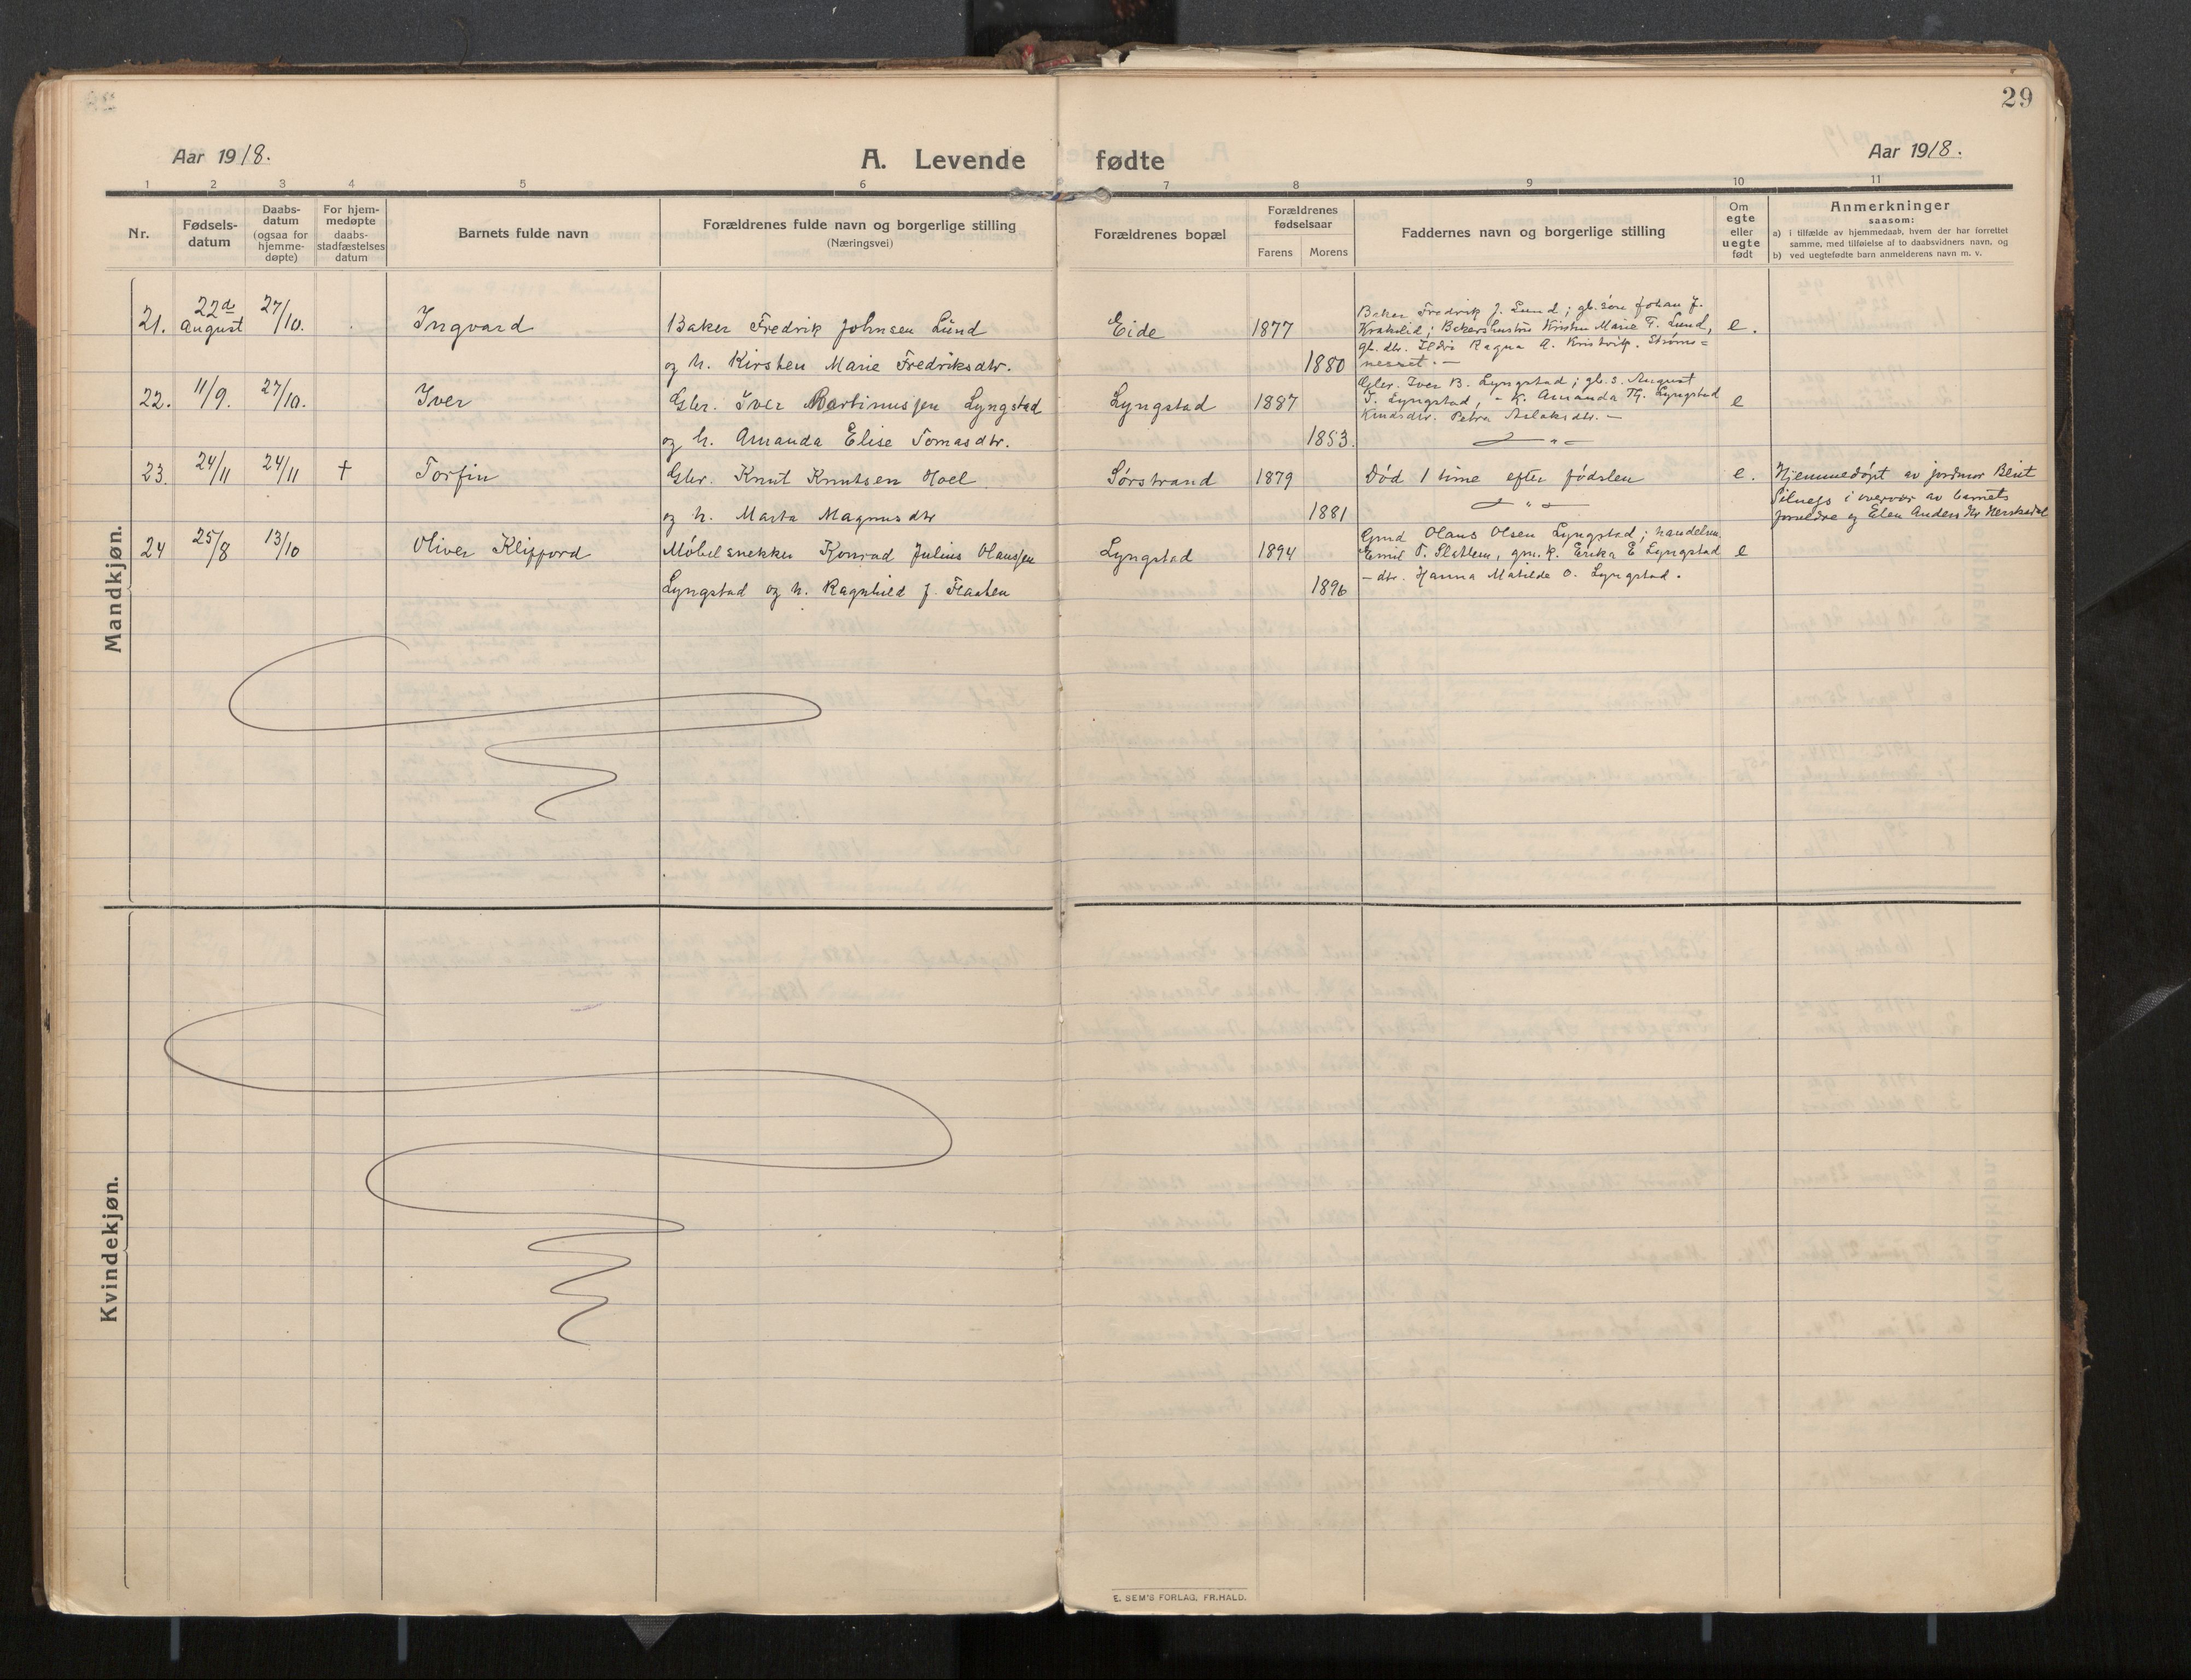 29
Aar 1918.
A. Levende fødte
Aar 1918.
1 2 3 4 5 6 7 8 9 10 11
Nr.
Fødsels-
datum
Daabs-
datum
(ogsaa for
hjemme-
døpte)
For hjem-
medøpte
daabs-
stadfæstelses
datum
Barnets fulde navn
Forældrenes fulde navn og borgerlige stilling
(Næringsvei)
Forældrenes bopæl
Forældrenes
fødselsaar
Farens Morens
Faddernes navn og borgerlige stilling
Om
egte
eller
uegte
født
Anmerkninger
saasom:
a) i tilfælde av hjemmedaab, hvem der har forrettet
samme, med tilføielse af to daabsvidners navn, og
b) ved uegtefødte barn anmelderens navn m. v.
Mandkjøn.
21. 22de August 27/10. Ingvard
Baker Fredrik Johnsen Lund
og h. Kirsten Marie Fredriksdtr.
Eide 1877
1880
Baker Fredrik J. Lund; gb. søn Johan J.
Krakelid; Bakershustru Kristen Marie F. Lund,
gb. dtr. Ragna A. Strøms=
nesset. —
e.
22. 11/9. 27/10. Iver
Gbr. Iver Martinussen Lyngstad
og h. Amanda Elise Tomasdtr.
Lyngstad 1887
1853.
Gbr. Iver B. Lyngstad; gb. s. August
T. Lyngstad, - K. Amanda Lyngstad
Petra Aslaksdtr. —
— " —
e
23. 24/11 24/11 † Torfin
Gbr. Knut Knutsen Hoel
og h. Marta Magnusdtr
Sørstrand 1879
1881
Død 1 time efter fødslen
— " —
e.
Hjemmedøpt av jordmor Berit
i overvær av barnets
forældre og Elen Anders
24 25/8 13/10 Oliver Klifford
Møbelsnekker Konrad Julius Olaussen
Lyngstad og h. Ragnhild J. Flaaten
Lyngstad 1894
1896
Gmd Olaus Olsen Lyngstad; handelsm.
Emil T. Slatlem, gm. k. Erika E Lyngstad
— dtr. Hanna Matilde O. Lyngstad.
e
Kvindekjøn.
E. SEM'S FORLAG, FR.HALD.